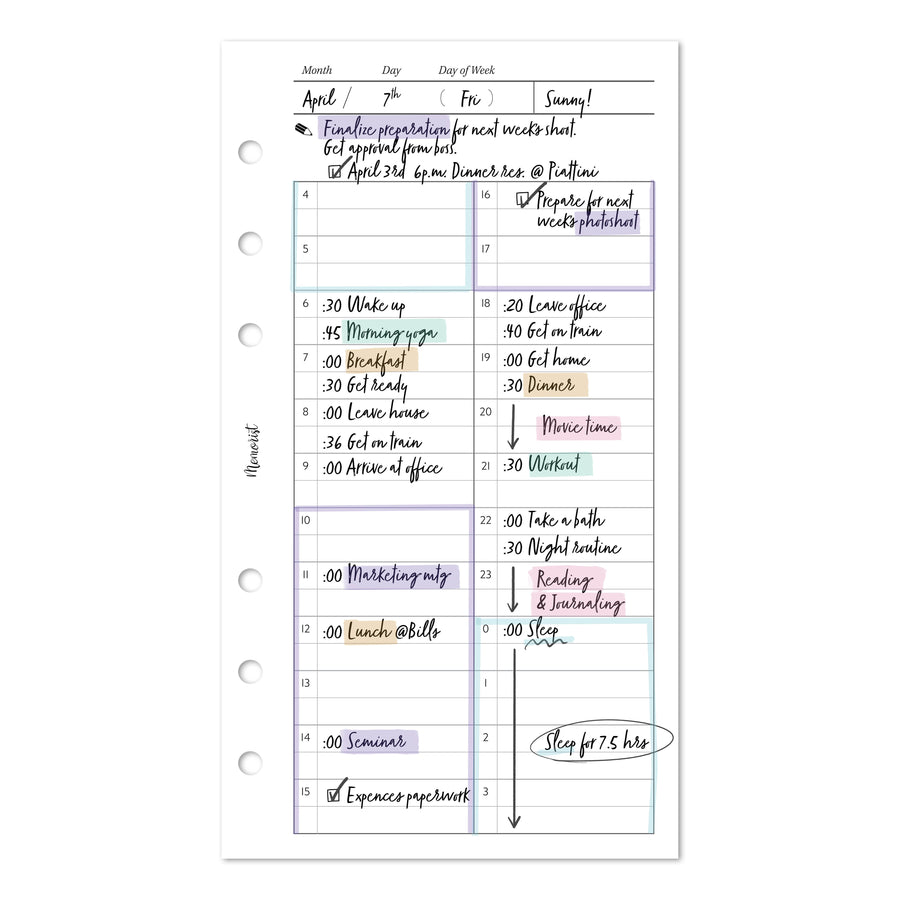 Month Day Day of Week
April / 7th ( Fri ) Sunny!
Finalize preparation for next weeks shoot.
Get approval from boss.
April 3rd 6p.m. Dinner res. @ Piattini
4
5
6 :30 Wake up
:45 Morning yoga
7 :00 Breakfast
:30 Get ready
8 :00 Leave house
:36 Get on train
9 :00 Arrive at office
10
11 :00 Marketing mtg
12 :00 Lunch @Bills
13
14 :00 Seminar
15 Expences paperwork
16 Prepare for next
weeks photoshoot
17
18 :20 Leave office
:40 Get on train
19 :00 Get home
:30 Dinner
20 Movie time
21 :30 Workout
22 :00 Take a bath
:30 Night routine
23 Reading
& Journaling
0 :00 Sleep
1
2 Sleep for 7.5 hrs
3
Memorist